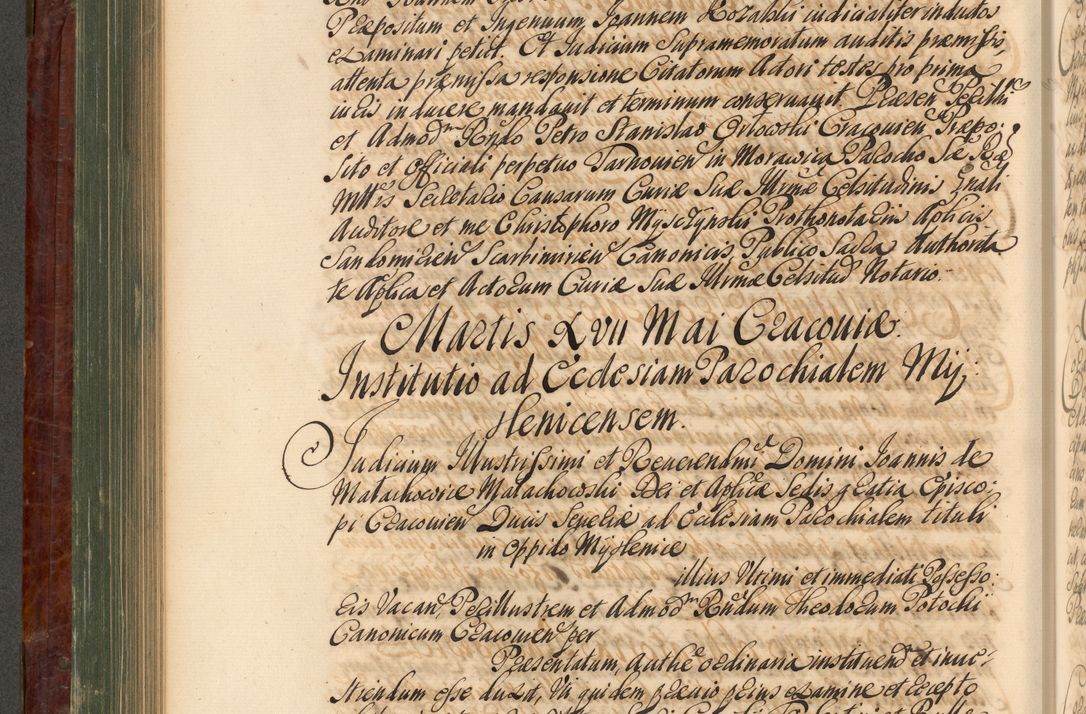 Præpositum et Ingenuum Joannem Kozalski iudicialiter inductos
examinari petiit. Et Iudicium Supramemoratum auditis præmissis,
attenta præmissa responsione Citatorum Actori testes pro prima
iuris inducere mandauit et terminum conseruauit. Præsen
et Admod Rndo Petro Stanislao Orłowski Cracouien Præpo:
sito et Officiali perpetuo Tarnouien in Morawica Parocho Sæ Ræ
Mttis Secretario Causarum Curiæ Suæ Illrmæ Celsitudinis Gnali
Auditore et me Christophoro Mysczynski Prothonotariis Aplicis
Sandomirien Scarbimirien Canonicis, Publico Sacra Authorita
te Aplica et Actorum Curiæ Suæ Illrmæ Celsitud Notario.
Martis XVII Mai Cracouiæ.
Institutio ad Ecclesiam Parochialem Mij:
slenicensem.
Iudicium Illustrissimi et Reuerendmi Domini Ioannis de
Małachowice Małachowski Dei et Aplicæ Sedis gratia Episco:
pi Cracouien Ducis Seueriæ ad Ecclesiam Parochialem tituli
in oppido Myslenice
illius Vltimi et immediati Possesso:
ris Vacan, Perillustrem et Admod Rndum Theodorum Potocki
Canonicum Cracouien per
Præsentatum, Authe ordinaria instituend et inue:
stiendum esse duxit, Vti quidem præuio prius examine et recepto